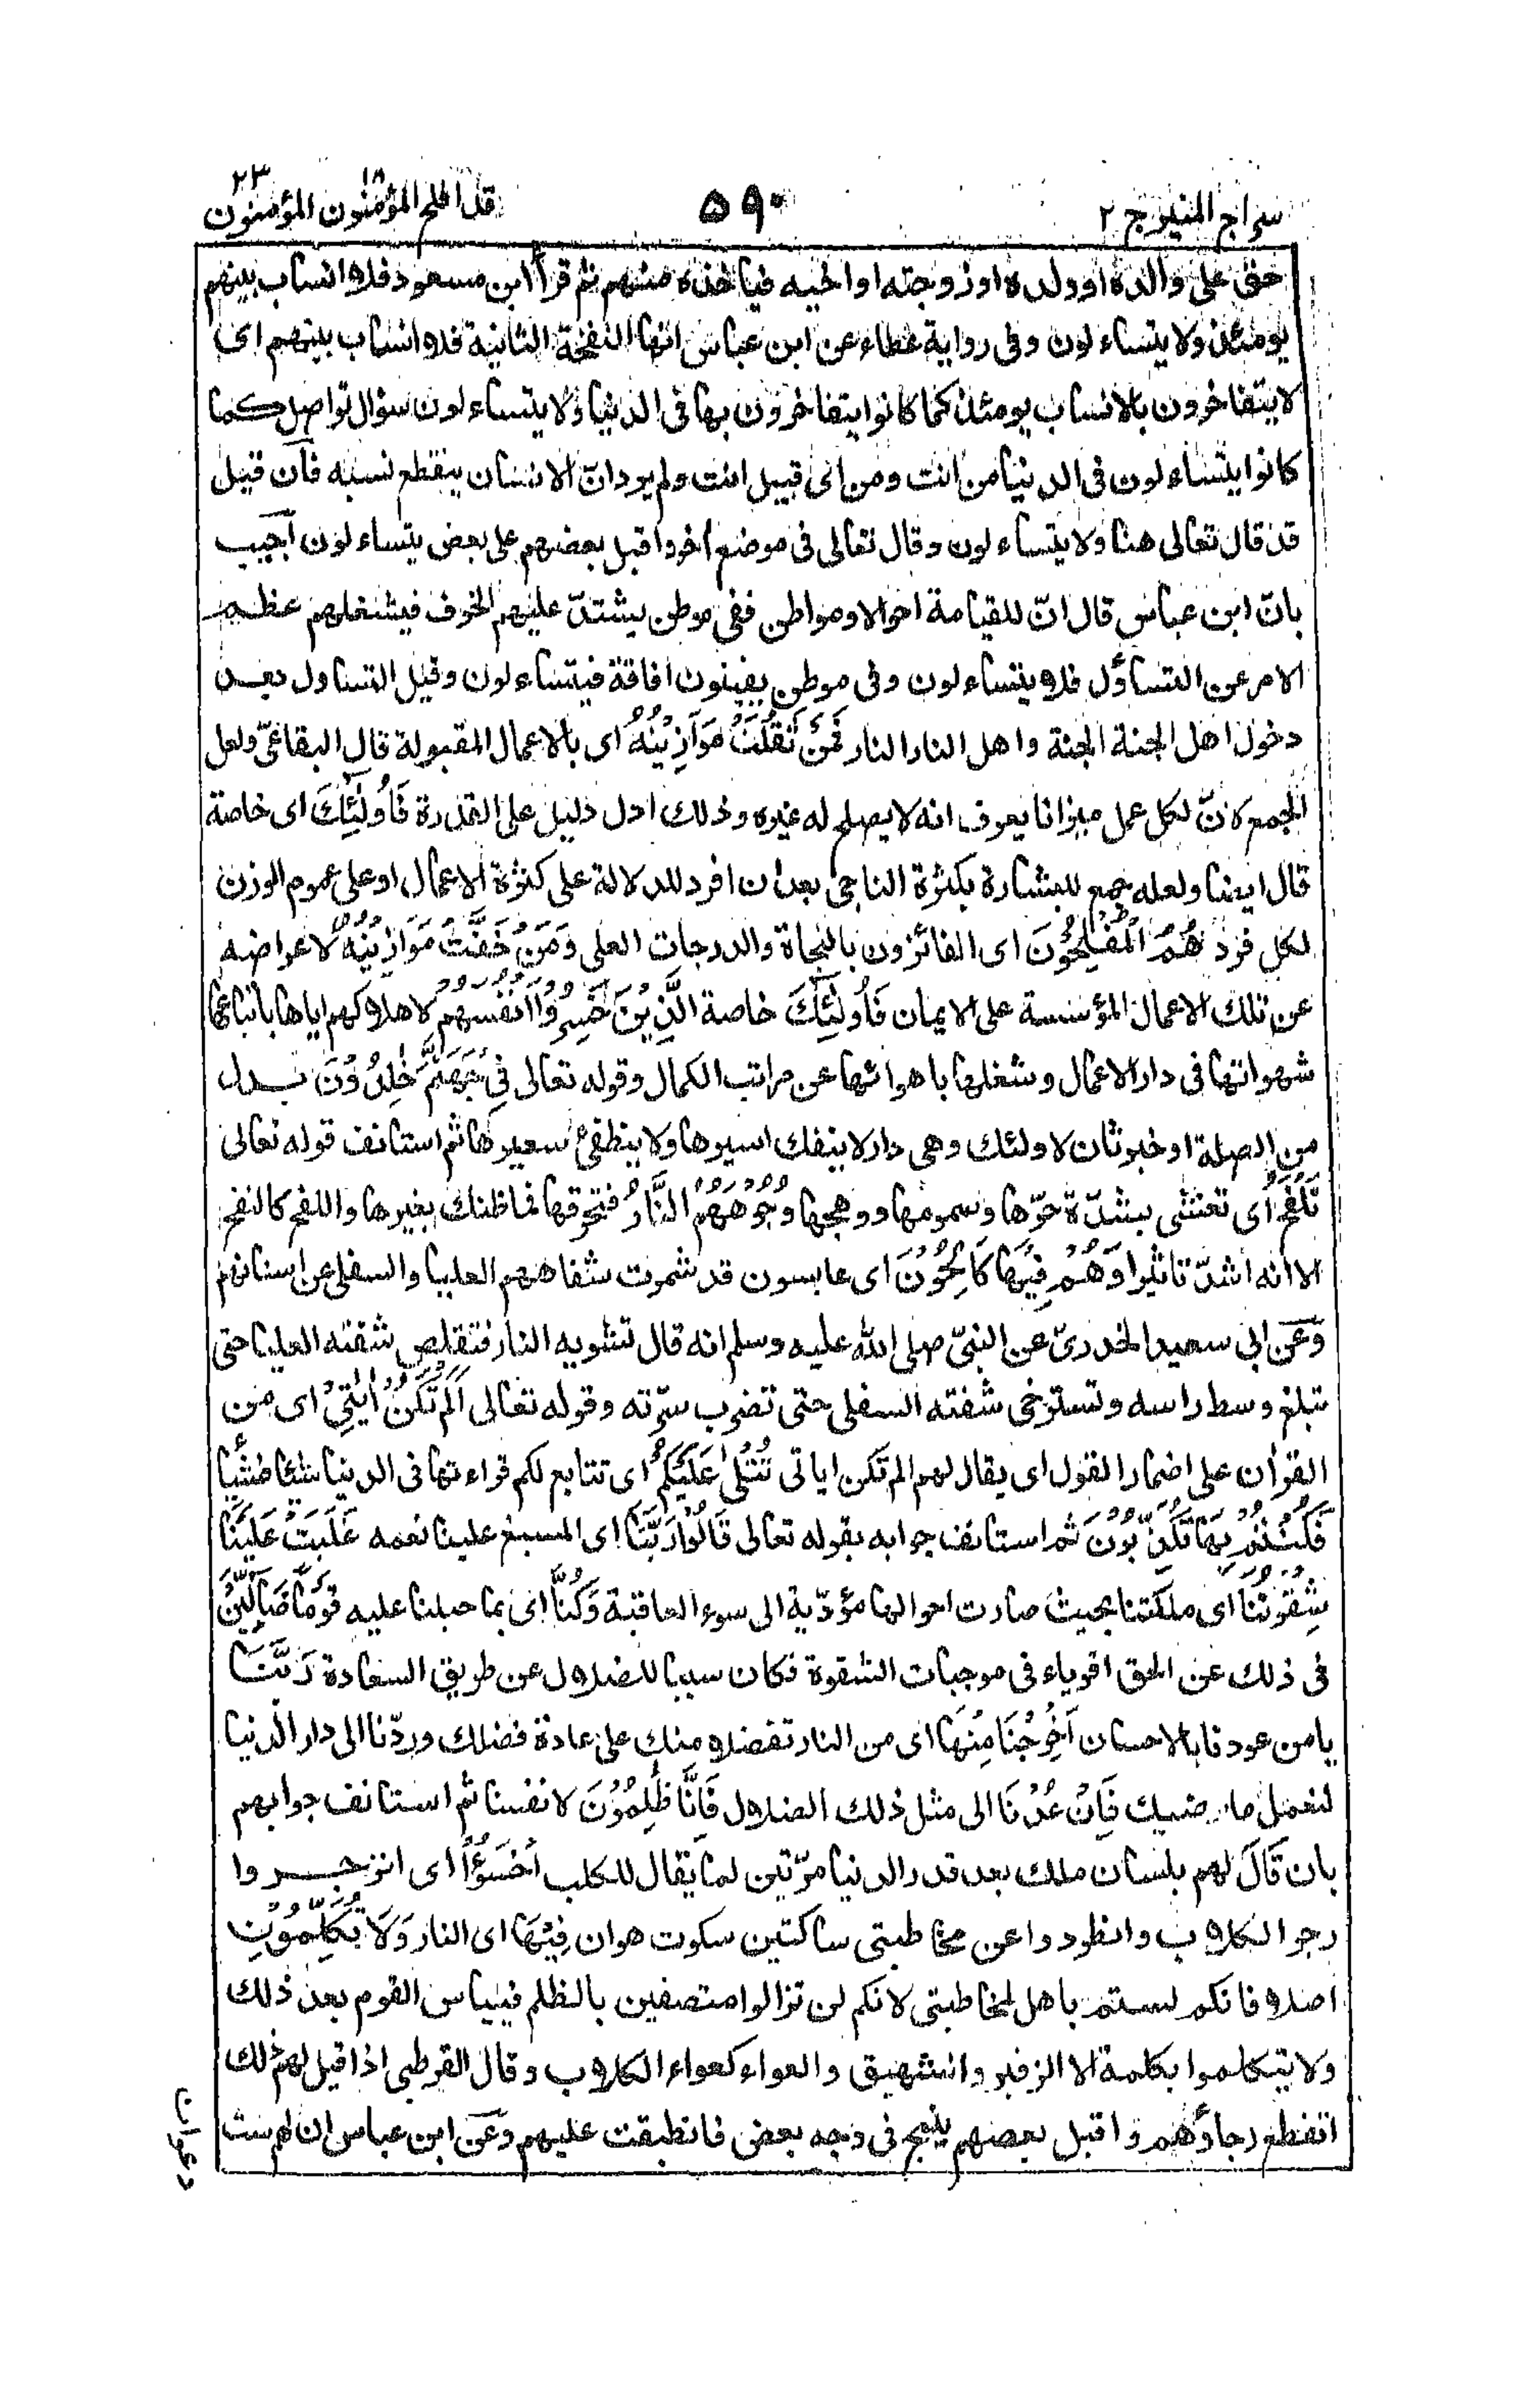 سراج المنير ج ٢
٥٩٠
قد افلح ١٨ المؤمنون المؤمنون ٢٣
حق على والده او ولده او زوجته او اخيه فياخذه منهم ثم قرأ ابن مسعود فلا انساب بينهم
يومئذ ولا يتساءلون وفى رواية عطاء عن ابن عباس انها النفخة الثانية فلا انساب بينهم اى
لا يتفاخرون بالانساب يومئذ كما كانوا يتفاخرون بها فى الدنيا ولا يتساءلون سؤال تواصل كما
كانوا يتساءلون فى الدنيا من انت ومن اى قبيل انت ولم يرد انّ الانسان ينقطع نسبه فان قيل
قد قال تعالى هنا ولا يتساءلون وقال تعالى فى موضع اخر واقبل بعضهم على بعض يتساءلون اجيب
بانّ ابن عباس قال انّ للقيامة احوالا ومواطن ففى موطن يشتدّ عليهم الخوف فيشغلهم عظم
الامر عن التساؤل فلا يتساءلون وفى موطن يفيقون افاقة فيتساءلون وقيل التساول بعد
دخول اهل الجنة الجنة واهل النار النار فَمَنْ ثَقُلَتْ مَوَازِيْنُهُ اى بالاعمال المقبولة قال البقاعىّ ولعل
الجمع لانّ لكل عمل ميزانا يعرف انه لا يصلح له غيره وذلك ادل دليل على القدرة فَأُولٰئِكَ اى خاصة
قال ايضا ولعله جمع للبشارة بكثرة الناجى بعد ان افرد للدلالة على كثرة الاعمال او على عموم الوزن
لكل فرد هُمُ الْمُفْلِحُوْنَ اى الفائزون بالنجاة والدرجات العلى وَمَنْ خَفَّتْ مَوَازِيْنُهُ لاعراضه
عن تلك الاعمال المؤسسة على الايمان فَأُولٰئِكَ خاصة الَّذِيْنَ خَسِرُوْا أَنْفُسَهُمْ لاهلاكهم اياها باتباعها
شهواتها فى دار الاعمال وشغلها باهوائها عن مراتب الكمال وقوله تعالى فِيْ جَهَنَّمَ خٰلِدُوْنَ بدل
من الصلة او خبر ثان لاولئك وهى دار لا ينفك اسيرها ولا ينطفئ سعيرها ثم استانف قوله تعالى
تَلْفَحُ اى تغشى بشدّة حرّها وسمومها ووهجها وُجُوْهَهُمُ النَّارُ فتحرقها فما ظنك بغيرها واللفح كالنفح
الا انه اشدّ تاثيرا وَهُمْ فِيْهَا كَالِحُوْنَ اى عابسون قد شمرت شفاههم العليا والسفلى عن اسنانهم
وعن ابى سعيد الخدرىّ عن النبىّ صلى الله عليه وسلم انه قال تشويه النار فتقلص شفته العليا حتى
تبلغ وسط راسه وتسترخى شفته السفلى حتى تضرب سرّته وقوله تعالى أَلَمْ تَكُنْ اٰيٰتِيْ اى من
القراٰن على اضمار القول اى يقال لهم الم تكن اياتى تُتْلٰى عَلَيْكُمْ اى تتابع لكم قراءتها فى الدنيا شيئا فشيئا
فَكُنْتُمْ بِهَا تُكَذِّبُوْنَ ثم استانف جوابه بقوله تعالى قَالُوْا رَبَّنَا اى المسبغ علينا نعمه غَلَبَتْ عَلَيْنَا
شِقْوَتُنَا اى ملكتنا بحيث صارت احوالها مؤدّية الى سوء العاقبة وَكُنَّا اى بما جبلنا عليه قَوْمًا ضَالِّيْنَ
فى ذلك عن الحق اقوياء فى موجبات الشقوة فكان سببا للضلال عن طريق السعادة رَبَّنَا
يا من عودنا بالاحسان أَخْرِجْنَا مِنْهَا اى من النار تفضلا منك على عادة فضلك وردّنا الى دار الدنيا
لنعمل ما يرضيك فَإِنْ عُدْنَا الى مثل ذلك الضلال فَإِنَّا ظٰلِمُوْنَ لانفسنا ثم استانف جوابهم
بان قَالَ لهم بلسان ملك بعد قدر الدنيا مرّتين كما يقال للكلب اخْسَؤُا اى انزجروا
زجر الكلاب وانطردوا عن مخاطبتى ساكتين سكوت هوان فِيْهَا اى النار وَلَا تُكَلِّمُوْنِ
اصلا فانكم لستم باهل لمخاطبتى لانكم لن تزالوا متصفين بالظلم فييأس القوم بعد ذلك
ولا يتكلموا بكلمة الا الزفير والشهيق والعواء كعواء الكلاب وقال القرطبى اذا قيل لهم ذلك
انقطع رجاؤهم واقبل بعضهم ينبح فى وجه بعض فانطبقت عليهم وعن ابن عباس ان لهم ست
دعوات